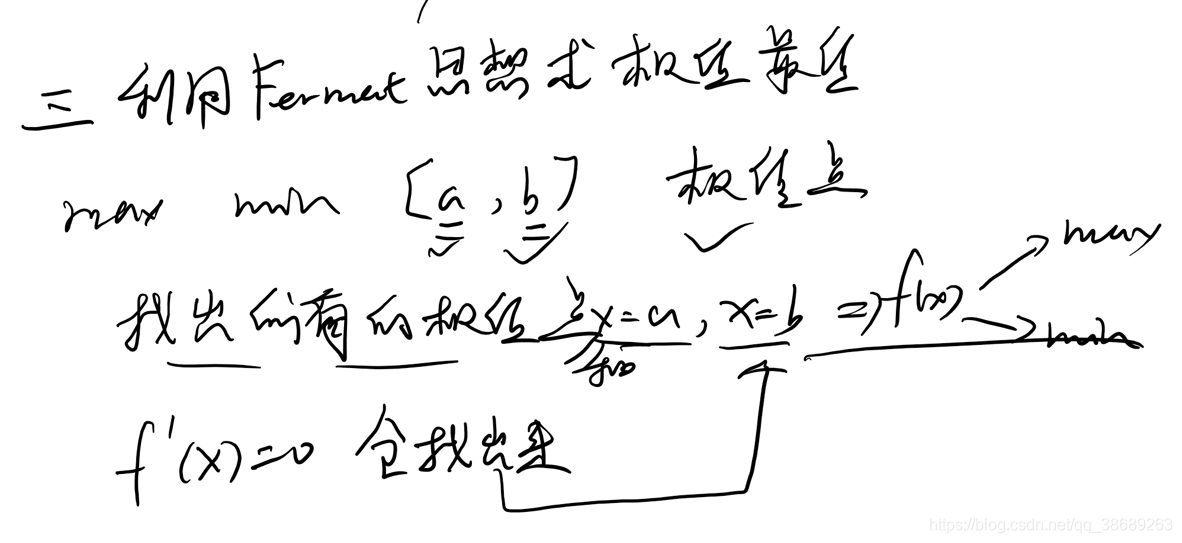 三 利用Fermat思想求极值最值
max min [a, b] 极值点
找出所有的极值点 x=a, x=b ⇒ f(x) → max → min
f'(x)=0 全找出来
https://blog.csdn.net/qq_38689263